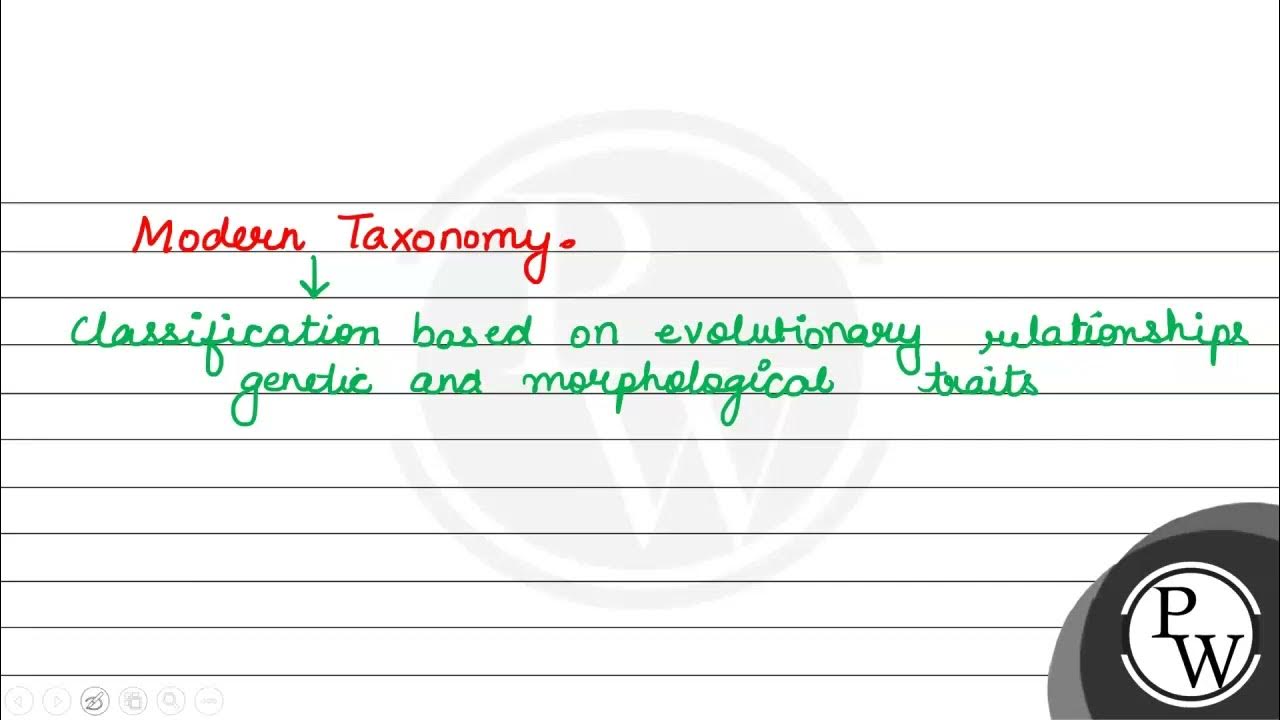 Modern Taxonomy.
↓
Classification based on evolutionary relationships
genetic and morphological traits
P
W
P
W